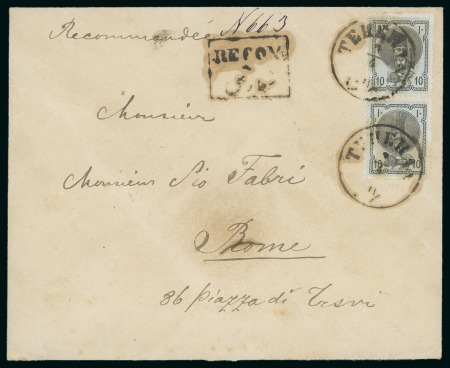 Recommandée N 663
RECOM
TEHERAN
1 1
10 10
TEHERAN
1 1
10 10
Monsieur
Monsieur Pio Fabri
Rome
86 piazza di Trevi